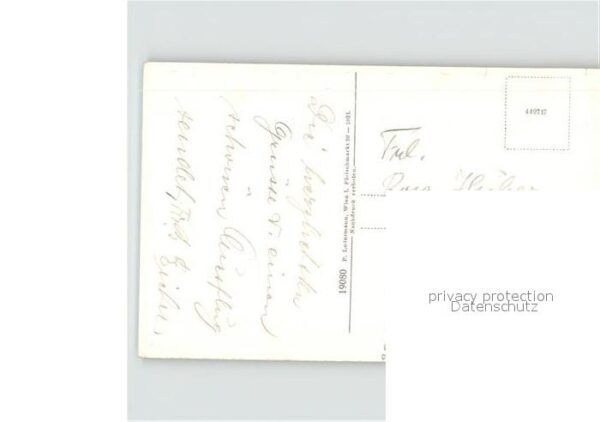 Die herzlichsten
Grüsse v. einem
schönen Ausflug
sendet
19080 P. Ledermann, Wien I, Fleischmarkt 20 — 1931.
Nachdruck verboten.
449737
Frl.
Rosa
privacy protection
Datenschutz